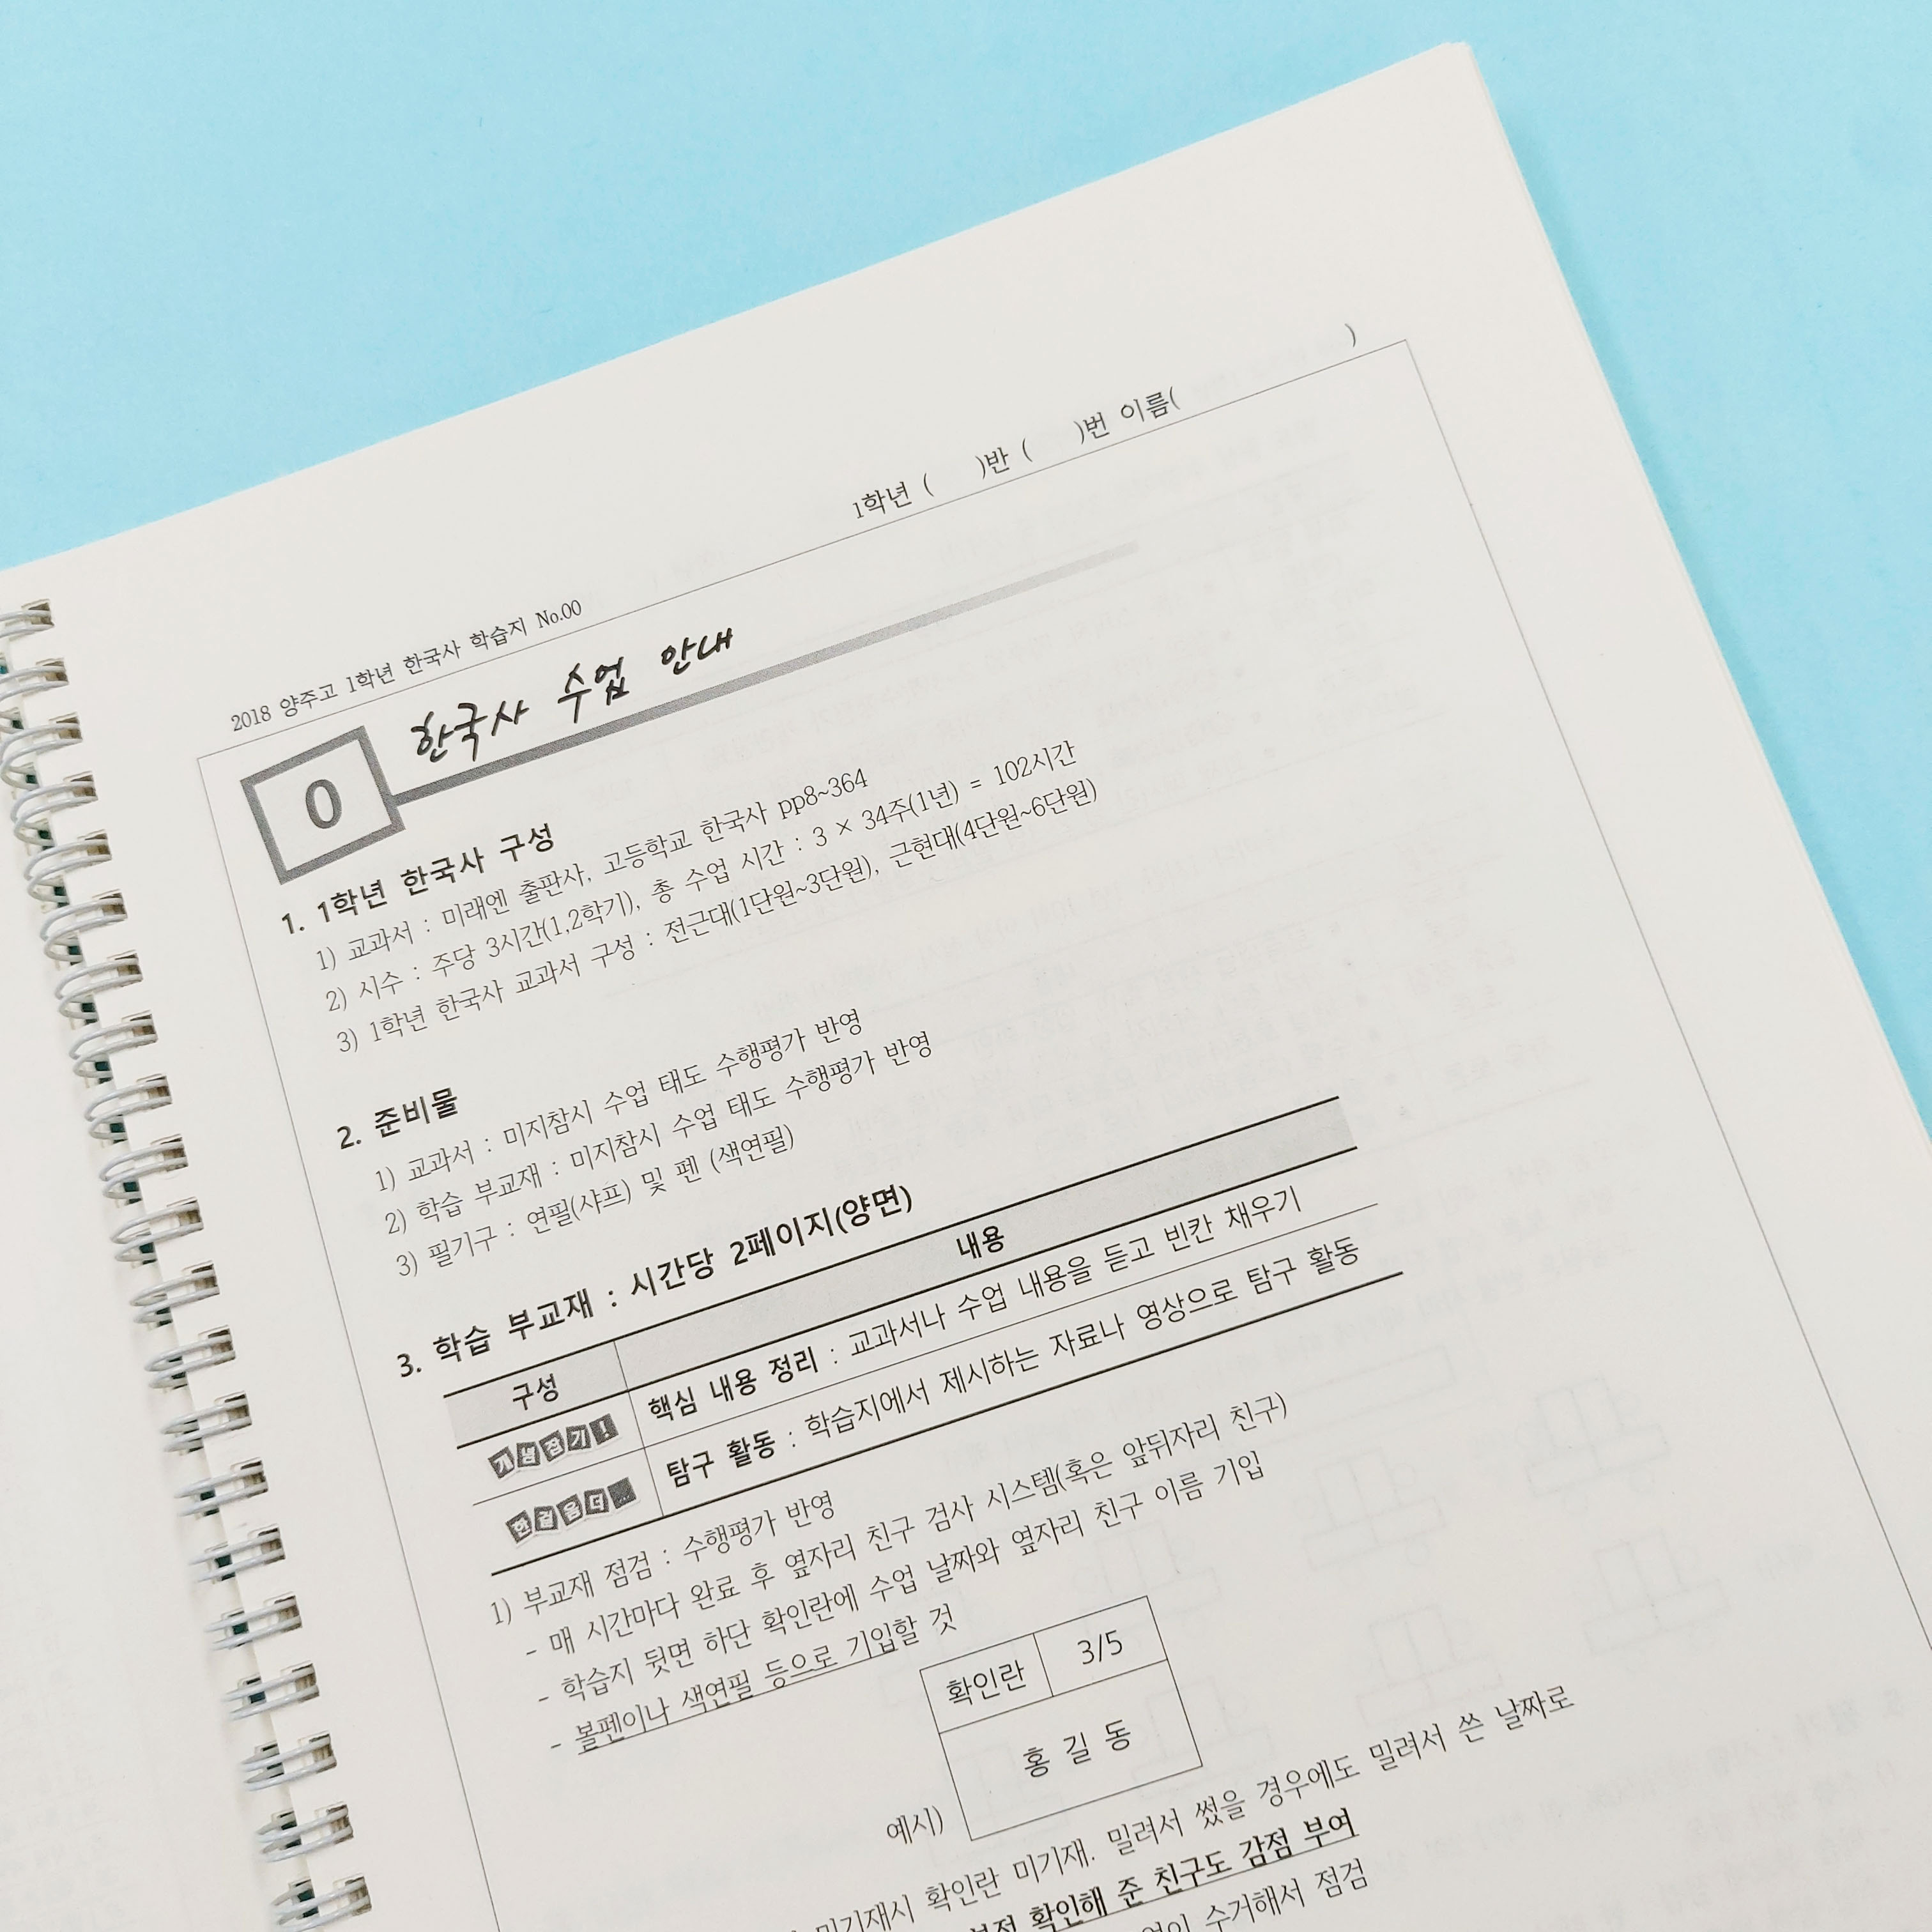 1학년 (    )반 (    )번 이름(            )
2018 양주고 1학년 한국사 학습지 No.00
0 한국사 수업 안내
1. 1학년 한국사 구성
1) 교과서 : 미래엔 출판사, 고등학교 한국사 pp8~364
2) 시수 : 주당 3시간(1,2학기), 총 수업 시간 : 3 × 34주(1년) = 102시간
3) 1학년 한국사 교과서 구성 : 전근대(1단원~3단원), 근현대(4단원~6단원)
2. 준비물
1) 교과서 : 미지참시 수업 태도 수행평가 반영
2) 학습 부교재 : 미지참시 수업 태도 수행평가 반영
3) 필기구 : 연필(샤프) 및 펜 (색연필)
3. 학습 부교재 : 시간당 2페이지(양면)
구성 내용
개념잡기! 핵심 내용 정리 : 교과서나 수업 내용을 듣고 빈칸 채우기
한걸음더... 탐구 활동 : 학습지에서 제시하는 자료나 영상으로 탐구 활동
1) 부교재 점검 : 수행평가 반영
- 매 시간마다 완료 후 옆자리 친구 검사 시스템(혹은 앞뒤자리 친구)
- 학습지 뒷면 하단 확인란에 수업 날짜와 옆자리 친구 이름 기입
- 볼펜이나 색연필 등으로 기입할 것
확인란 3/5
홍 길 동
예시)
미기재시 확인란 미기재. 밀려서 썼을 경우에도 밀려서 쓴 날짜로
확인해 준 친구도 감점 부여
수거해서 점검